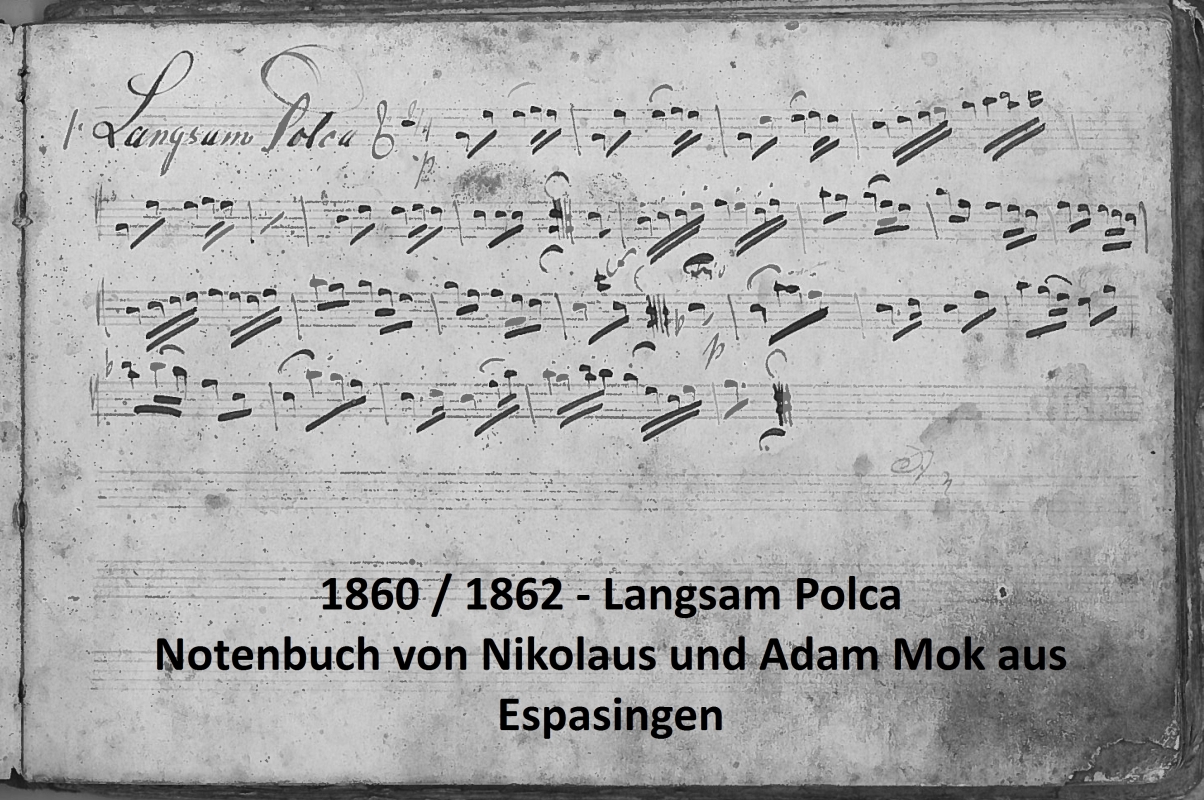 1. Langsam Polca 2/4
p
Trio
p
1860 / 1862 - Langsam Polca
Notenbuch von Nikolaus und Adam Mok aus
Espasingen